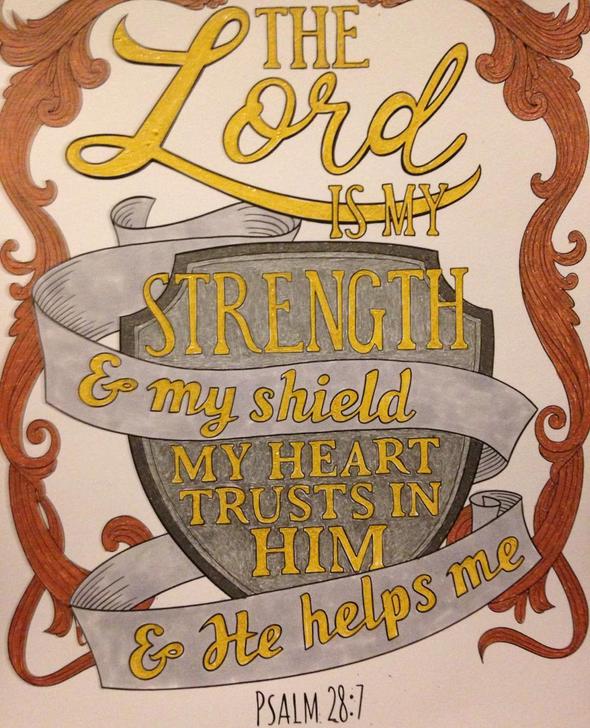 THE
Lord
IS MY
STRENGTH
& my shield
MY HEART
TRUSTS IN
HIM
& He helps me
PSALM 28:7